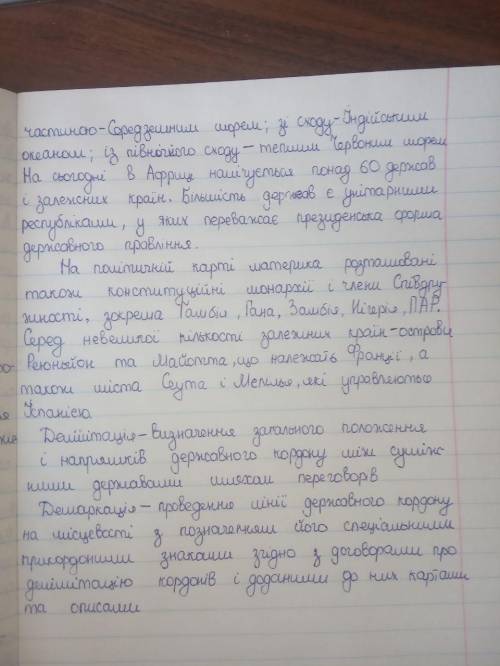 частиною-Середземним морем; зі сходу-Індійським
океаном; із північного сходу-теплим Червоним морем
На сьогодні в Африці налічується понад 60 держав
і залежних країн. Більшість держав є унітарними
республіками, у яких переважає президенська форма
державного правління.
На політичній карті материка розташовані
також конституційні монархії і члени Співдру-
жності, зокрема Гамбія, Гана, Замбія, Нігерія, ПАР.
Серед невеликої кількості залежних країн-острови
Реюньйон та Майотта, що належать Франції, а
також міста Сеута і Мелілья, які управляються
Іспанією
Делімітація-визначення загального положення
і напрямків державного кордону між суміж-
ними державами шляхом переговорів
Демаркація-проведення лінії державного кордону
на місцевості з позначенням його спеціальними
прикордонними знаками згідно з договорами про
делімітацію кордонів і доданими до них картами
та описами